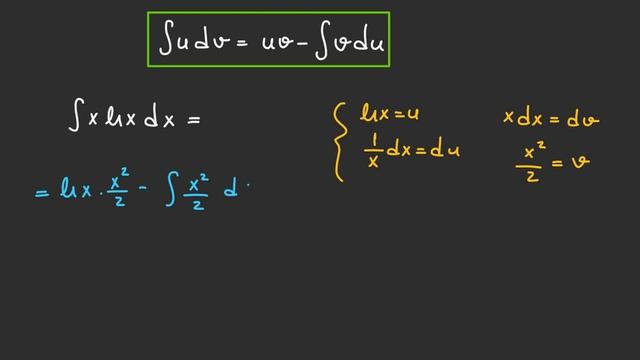 ∫u dv = uv - ∫v du
∫x ln x dx =
ln x = u
x dx = dv
1/x dx = du
x²/2 = v
= ln x · x²/2 - ∫ x²/2 d